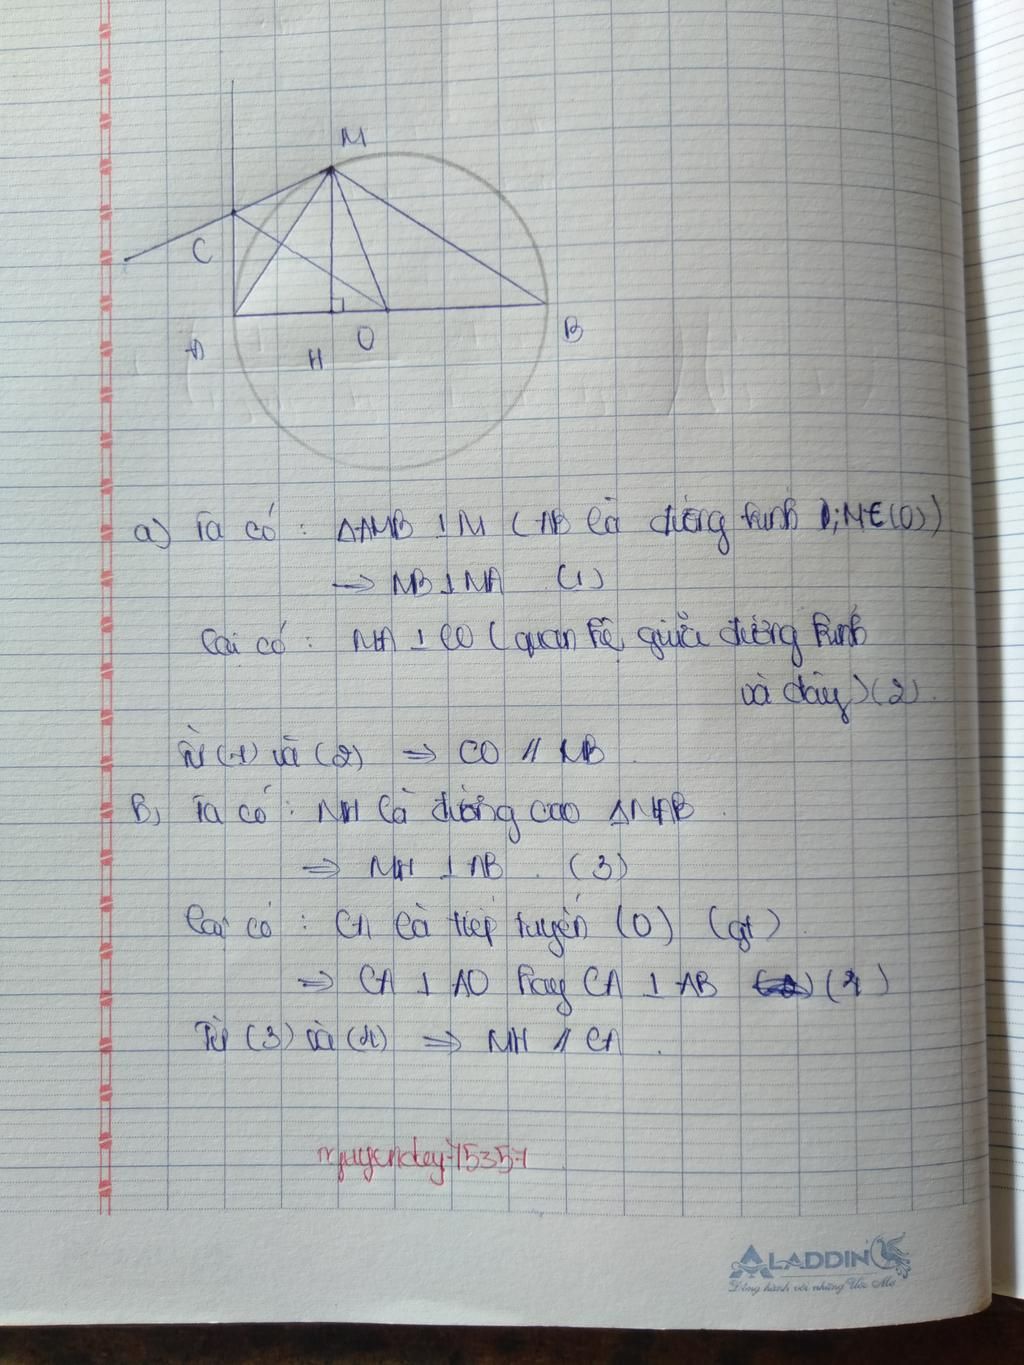 M
C
A
H
O
B
a) Ta có : ΔAMB ⊥ M ( AB là đường kính ; M ∈ (O))
→ MB ⊥ MA (1)
Lại có : MA ⊥ CO ( quan hệ giữa đường kính
và dây ) (2).
Từ (1) và (2) ⇒ CO // MB .
B, Ta có : MH là đường cao ΔMAB .
⇒ MH ⊥ AB . (3)
Lại có : CA là tiếp tuyến (O) (gt) .
⇒ CA ⊥ AO hay CA ⊥ AB (4)
Từ (3) và (4) ⇒ MH // CA .
ALADDIN
Đồng hành với những Ước Mơ